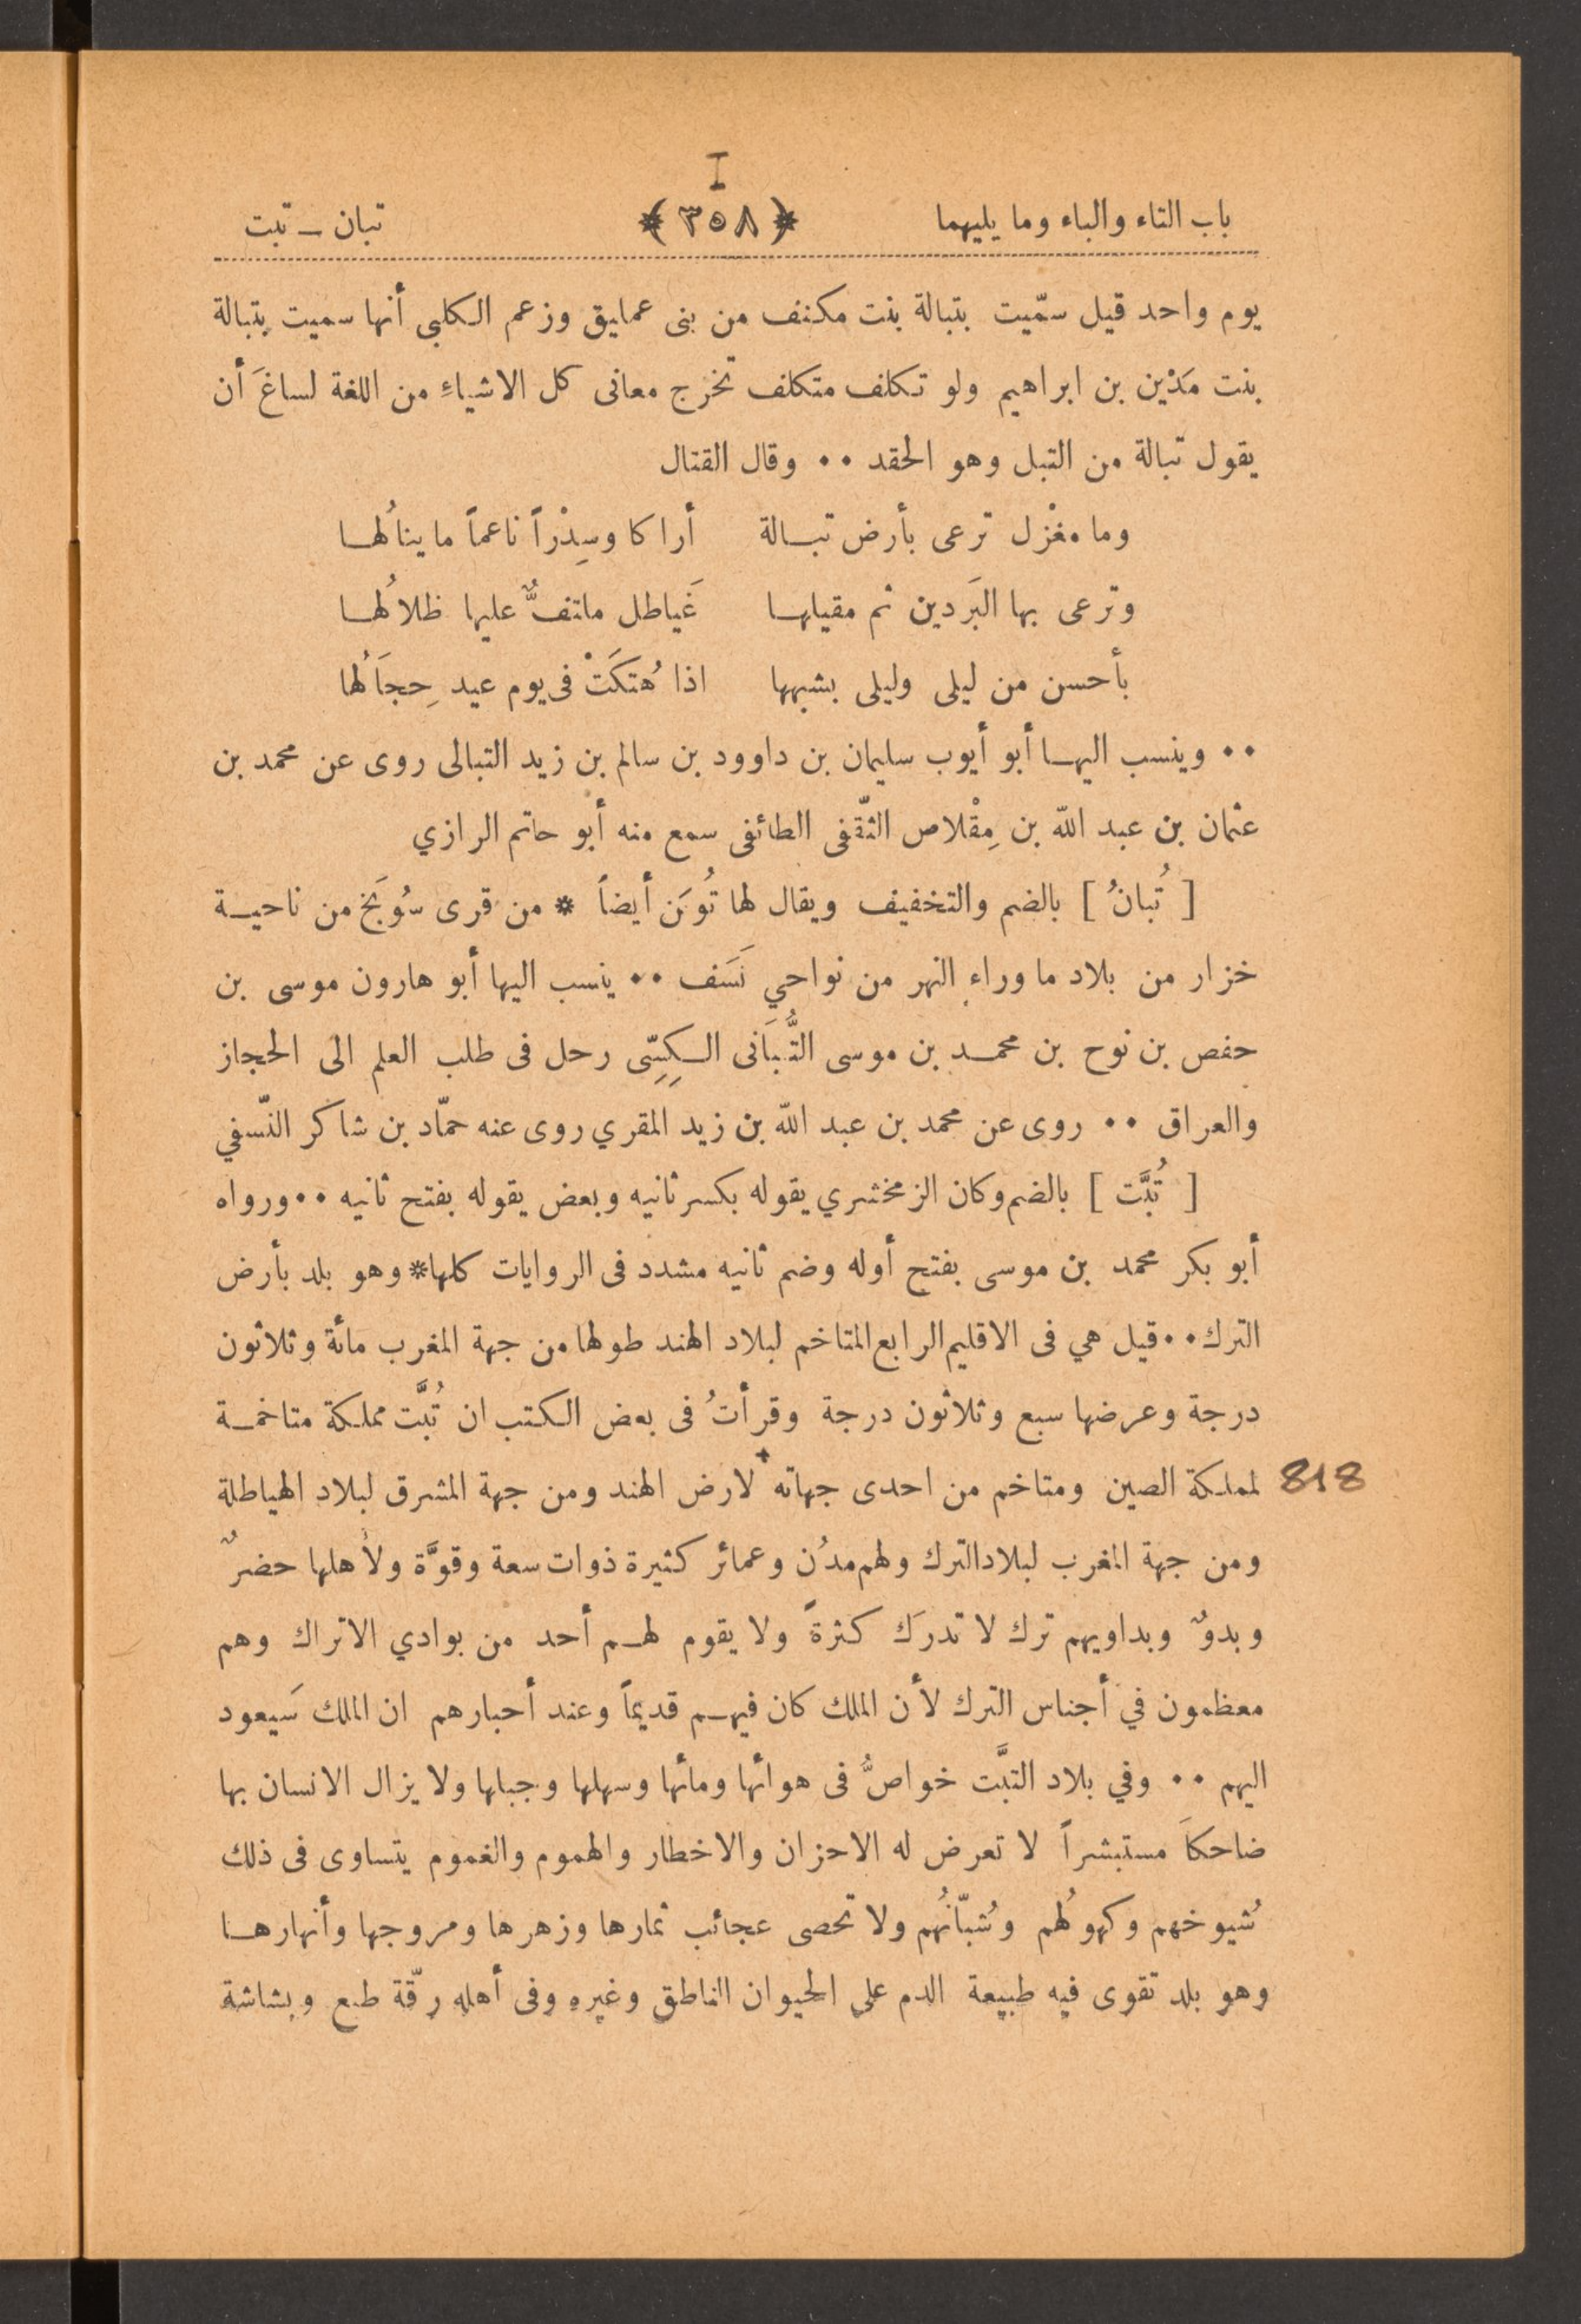 I
باب التاء والباء وما يليهما ﴿٣٥٨﴾ تبان ــ تبت
يوم واحد قيل سمّيت بتبالة بنت مكنف من بنى عمليق وزعم الكلبى أنها سميت بتبالة
بنت مَدْين بن ابراهيم ولو تكلف متكلف تخرج معانى كل الاشياءِ من اللغة لساغَ أن
يقول تبالة من التبل وهو الحقد ٠٠ وقال القتال
وما مغْزل ترعى بأرض تبالة أراكا وسِدْراً ناعماً ما ينالُها
وترعى بها البَردين ثم مقيلها غَياطل ملتفٌّ عليها ظلالُها
بأحسن من ليلى وليلى بشبهها اذا هُتكَتْ فى يوم عيد حِجَالُها
٠٠ وينسب اليها أبو أيوب سليمان بن داوود بن سالم بن زيد التبالى روى عن محمد بن
عثمان بن عبد الله بن مِقْلاص الثّقفى الطائفى سمع منه أبو حاتم الرازي
[ تُبانُ ] بالضم والتخفيف ويقال لها تُوبَن أيضاً * من قرى سُوبَخ من ناحية
خزار من بلاد ما وراء النهر من نواحي نَسَف ٠٠ ينسب اليها أبو هارون موسى بن
حفص بن نوح بن محمد بن موسى التُّبَانى الكِسِّى رحل فى طلب العلم الى الحجاز
والعراق ٠٠ روى عن محمد بن عبد الله بن زيد المقري روى عنه حمّاد بن شاكر النّسفي
[ تُبَّت ] بالضم وكان الزمخشري يقوله بكسر ثانيه وبعض يقوله بفتح ثانيه ٠٠ ورواه
أبو بكر محمد بن موسى بفتح أوله وضم ثانيه مشدد فى الروايات كلها* وهو بلد بأرض
الترك ٠٠ قيل هي فى الاقليم الرابع المتاخم لبلاد الهند طولها من جهة المغرب مائة وثلاثون
درجة وعرضها سبع وثلاثون درجة وقرأتُ فى بعض الكتب ان تُبَّت مملكة متاخمة
818 لمملكة الصين ومتاخم من احدى جهاته + لارض الهند ومن جهة المشرق لبلاد الهياطلة
ومن جهة المغرب لبلاد الترك ولهم مدُن وعمائر كثيرة ذوات سعة وقوَّة ولأهلها حضرٌ
وبدوٌ وبداويهم ترك لا تدرَك كثرةً ولا يقوم لهم أحد من بوادي الاتراك وهم
معظمون في أجناس الترك لأن الملك كان فيهم قديماً وعند أحبارهم ان الملك سَيعود
اليهم ٠٠ وفي بلاد التبَّت خواصُّ فى هوائها ومائها وسهلها وجبلها ولا يزال الانسان بها
ضاحكاَ مستبشراً لا تعرض له الاحزان والاخطار والهموم والغموم يتساوى فى ذلك
شُيوخهم وكهولُهم وشُبّانُهم ولا تحصى عجائب ثمارها وزهرها ومروجها وأنهارها
وهو بلد تقوى فيه طبيعة الدم على الحيوان الناطق وغيره وفى أهله رقّة طبع وبشاشة